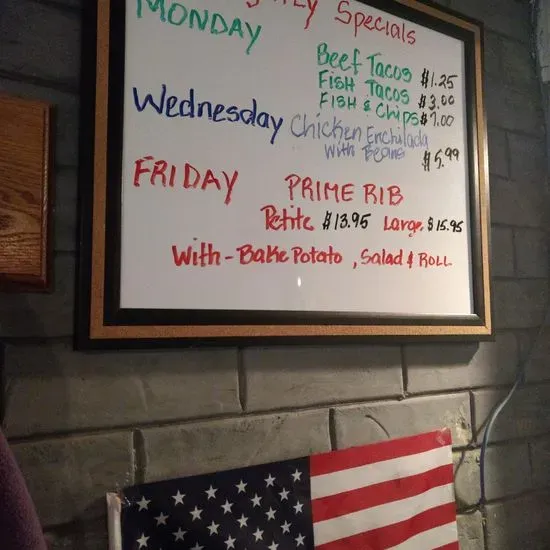 Specials
MONDAY
Beef Tacos $1.25
FISH Tacos $3.00
FISH & Chips $7.00
Wednesday Chicken Enchilada
With Beans $5.99
FRIDAY PRIME RIB
Petite $13.95 Large $15.95
With - Bake Potato, Salad & ROLL